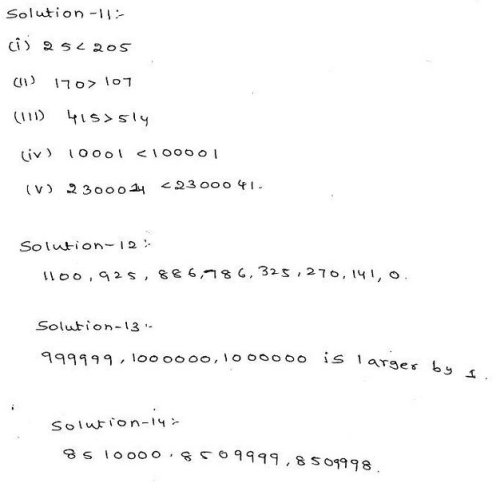 Solution-11:-
(i) 25<205
(II) 170>107
(III) 415>514
(iv) 10001 <100001
(V) 2300014 <2300041.
Solution-12:-
1100, 925, 886, 786, 325, 270, 141, 0.
Solution-13:-
999999, 1000000, 1000000 is larger by 1.
Solution-14:-
8510000, 8509999, 8509998.